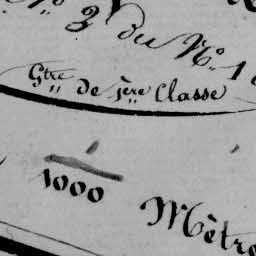 N.º 3 du N.º 1
Gtre de 1ere Classe
1/1000 Mètre